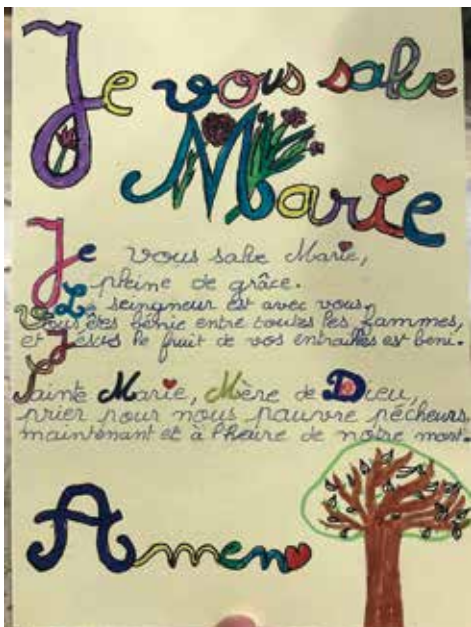 Je vous salue
Marie
Je vous salue Marie,
pleine de grâce.
Le seingneur est avec vous,
vous êtes bénie entre toutes les fammes,
et Jésus le fruit de vos entrailles est beni.
Sainte Marie, Mère de Dieu,
prier pour nous pauvre pécheurs
maintenant et à l'heire de notre mort.
Amen